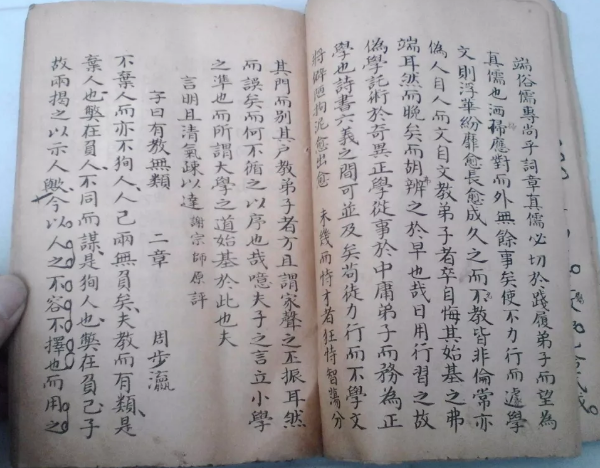 端俗儒專尚乎詞章真儒必切於踐履弟子而望為
真儒也洒掃應對而外無餘事矣使不力行而遽學
文則浮華紛靡愈長愈成久之而不教皆非倫常亦
偽人自人而文自文教弟子者卒自悔其始基之弗
端耳然而晚矣而胡辨之於早也哉日用行習之故
偽學託術於奇異正學從事於中庸弟子而務為正
學也詩書六義之間可並及矣苟徒力行而不學文
將僻陋拘泥愈出愈 未幾而恃才者狂恃智蕩分
其門而別其户教弟子者方且謂家聲之丕振耳然
而誤矣而何不循之以序也哉噫夫子之言立小學
之準也而所謂大學之道始基於此也夫
言明且清氣疎以達 謝宗師原評
子曰有教無類 二章 周步瀛
不棄人而亦不狥人人己兩無負矣夫教而有類是
棄人也弊在負人不同而謀是狥人也弊在負己子
故兩揭之以示人與今以人之不容不擇也而用之